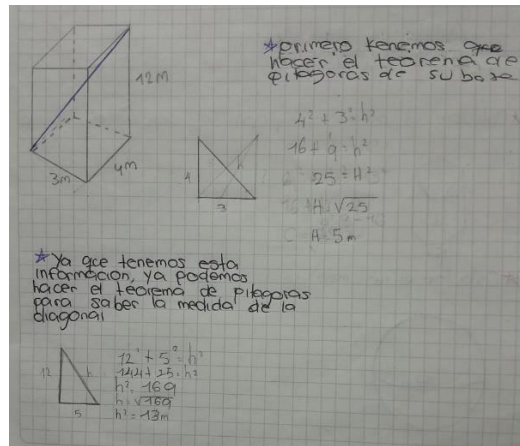 *primero tenemos que
hacer el teorema de
pitagoras de su base
12M
3m
4m
4² + 3² = h²
16 + 9 = h²
25 = H²
H = √25
H = 5m
4
h
3
*Ya que tenemos esta
información, ya podemos
hacer el teorema de pitagoras
para saber la medida de la
diagonal
12
h
5
12² + 5² = h²
144 + 25 = h²
h² = 169
h = √169
h² = 13m